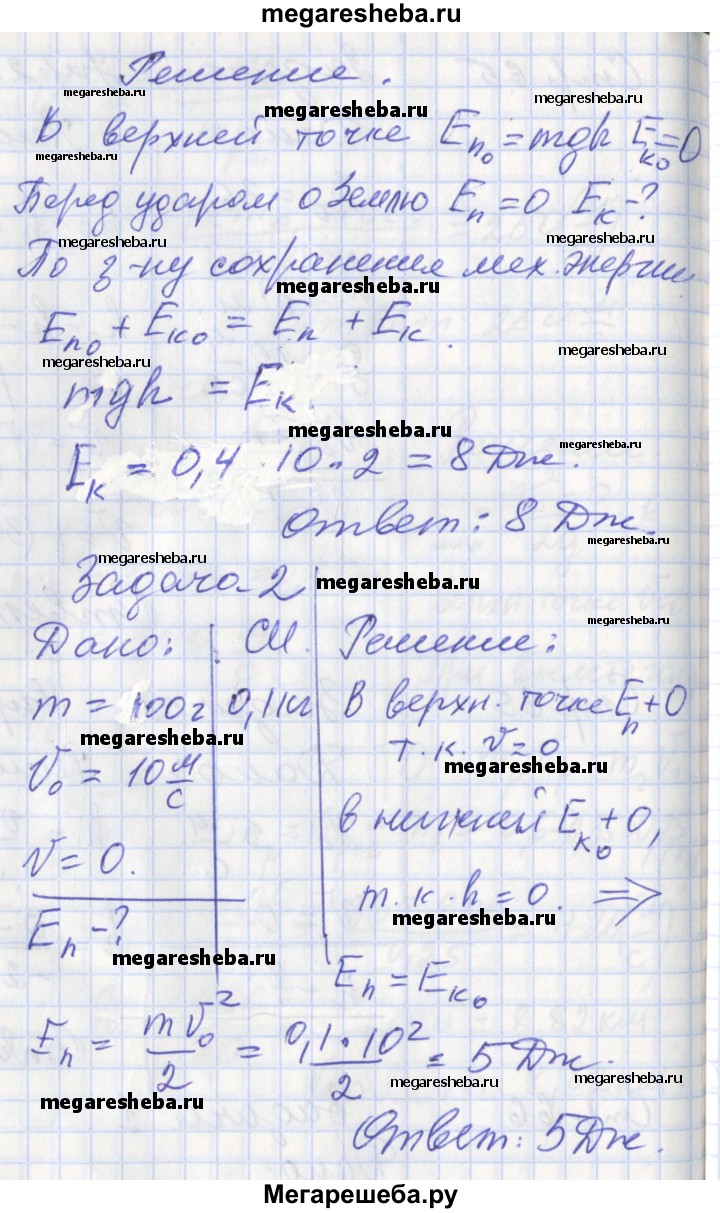 megaresheba.ru
Решение.
megaresheba.ru
megaresheba.ru
megaresheba.ru
В верхней точке Eп₀ = mgh Eк₀ = 0
megaresheba.ru
Перед ударом о Землю Eп = 0 Eк - ?
megaresheba.ru
megaresheba.ru
По з-ну сохранения мех. энергии
megaresheba.ru
Eп₀ + Eк₀ = Eп + Eк.
megaresheba.ru
megaresheba.ru
mgh = Eк.
megaresheba.ru
megaresheba.ru
Eк = 0,4 · 10 · 2 = 8 Дж.
Ответ: 8 Дж.
megaresheba.ru
megaresheba.ru
Задача 2
megaresheba.ru
Дано: СИ. Решение:
megaresheba.ru
m = 100г 0,1кг В верхн. точке Eп + 0
megaresheba.ru
т. к. v = 0
megaresheba.ru
V₀ = 10 м/с
в нижней Eк₀ + 0,
v = 0.
т. к. h = 0. ⇒
megaresheba.ru
Eп - ?
megaresheba.ru
Eп = Eк₀
Eп = mV₀²/2 = 0,1 · 10²/2 = 5 Дж.
megaresheba.ru
megaresheba.ru
megaresheba.ru
Ответ: 5 Дж.
Мегарешеба.ру